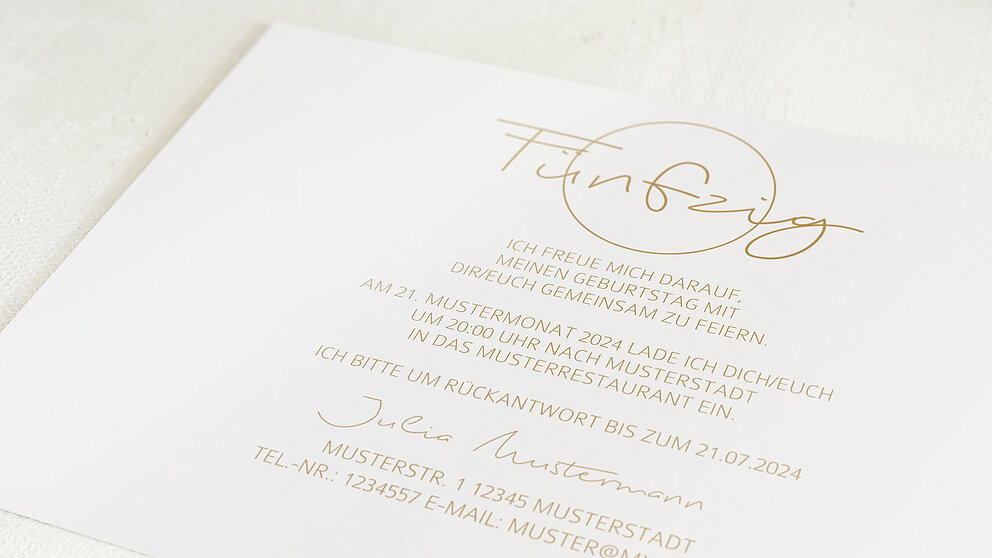 Fünfzig
ICH FREUE MICH DARAUF,
MEINEN GEBURTSTAG MIT
DIR/EUCH GEMEINSAM ZU FEIERN.
AM 21. MUSTERMONAT 2024 LADE ICH DICH/EUCH
UM 20:00 UHR NACH MUSTERSTADT
IN DAS MUSTERRESTAURANT EIN.
ICH BITTE UM RÜCKANTWORT BIS ZUM 21.07.2024
Julia Mustermann
MUSTERSTR. 1 12345 MUSTERSTADT
TEL.-NR.: 1234557 E-MAIL: